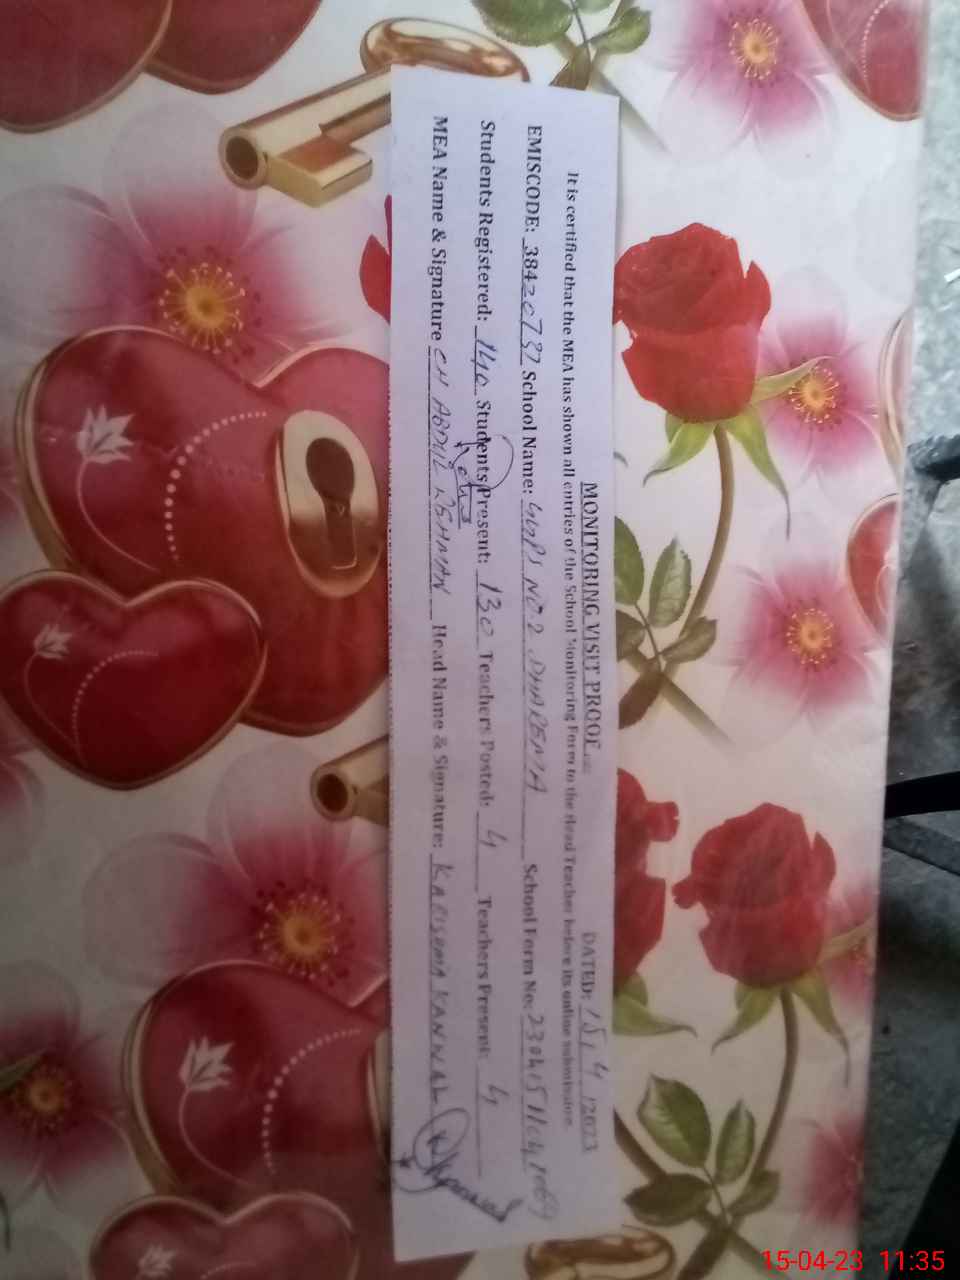 MONITORING VISIT PROOF
DATED: 15/4/2023
It is certified that the MEA has shown all entries of the School Monitoring Form to the Head Teacher before its online submission.
EMISCODE: 38420737 School Name: GGPS NO.2 DHAREMA School Form No:
Students Registered: 140 Students Present: 130 Teachers Posted: 4 Teachers Present: 4
MEA Name & Signature CH ABDUL REHMAN Head Name & Signature: KANWAL
15-04-23 11:35